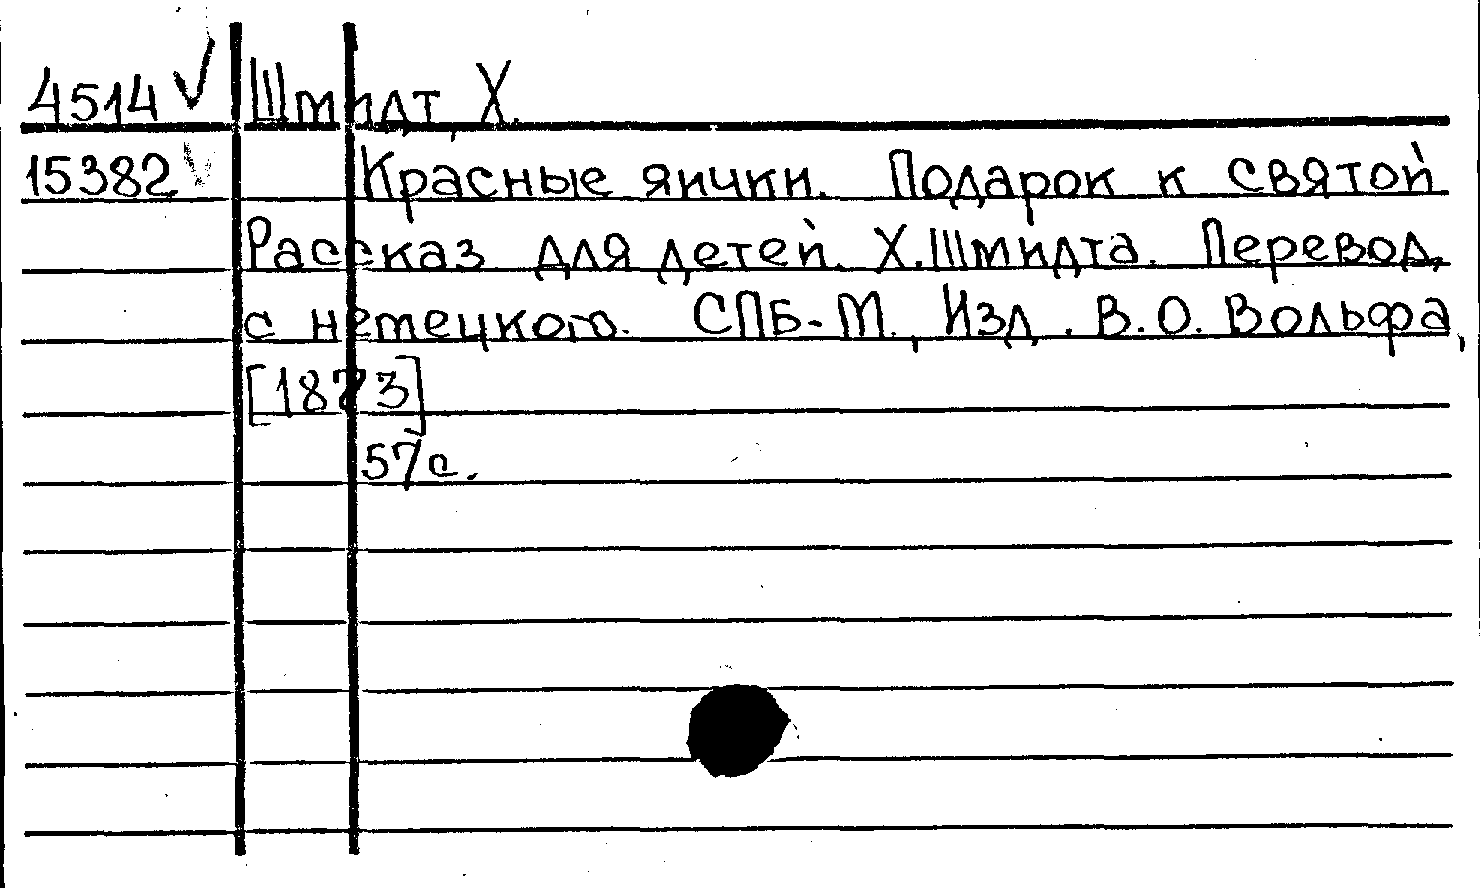 4514 Шмидт, Х.
15382 Красные яички. Подарок к святой
Рассказ для детей. Х.Шмидта. Перевод
с немецкого. СПБ-М., Изд. В.О. Вольфа,
[1873]
57с.